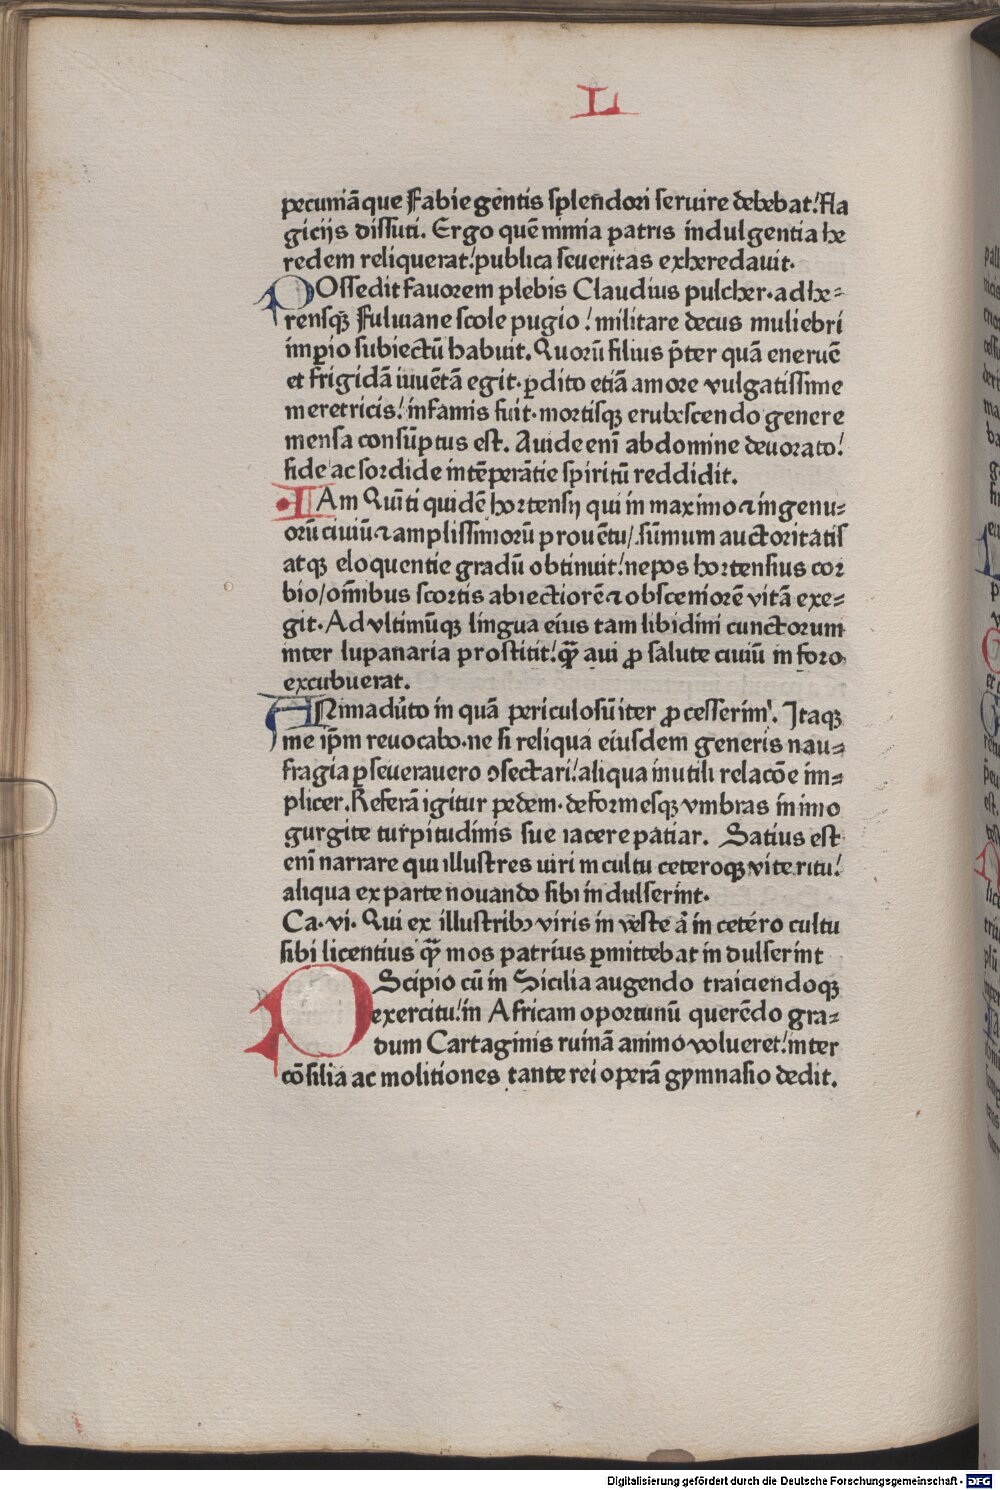 L
pecuniāque Fabie gentis splendori seruire debebat! Fla
gicijs dissuti. Ergo quē nimia patris indulgentia he
redem reliquerat! publica seueritas exheredauit.
POssedit fauorem plebis Claudius pulcher. adhe⸗
rensqꝫ Fuluiane scole pugio! militare decus muliebri
imꝑio subiectū habuit. Quorū filius p̄ter quā eneruē
et frigidā iuuētā egit. ꝑdito etiā amore vulgatissime
meretricis! infamis fuit. mortisqꝫ erubescendo genere
mensa consūptus est. Auide eni̅ abdomine deuorato!
fide ac sordide intēperātie spiritū reddidit.
IAm Qui̅ti quidē hortensij qui in maximo ⁊ ingenu⸗
orū ciuiū ⁊ amplissimorū prouētu/ sūmum auctoritatis
atqꝫ eloquentie gradū obtinuit! nepos hortensius cor
bio/ om̄ibus scortis abiectiorē ⁊ obsceniorē vitā exe⸗
git. Ad vltimūqꝫ lingua eius tam libidini cunctorum
inter lupanaria prostitit! qꝫ̄ aui ꝓ salute ciuiū in foro
excubuerat.
ANimadu̇to in quā periculosū iter ꝓcesserim'. Itaqꝫ
me ip̄m reuocabo. ne si reliqua eiusdem generis nau⸗
fragia ꝑseuerauero ꝯsectari! aliqua inutili relacōe im⸗
plicer. Referā igitur pedem. deformesqꝫ vmbras in imo
gurgite turpitudinis sue iacere patiar. Satius est
eni̅ narrare qui illustres uiri in cultu ceteroqꝫ vite ritu!
aliqua ex parte nouando sibi indulserint.
Ca. vi. Qui ex illustribꝰ viris in veste a̅ in cetero cultu
sibi licentius qꝫ̄ mos patrius ꝑmittebat indulserint
P Scipio cū in Sicilia augendo traiciendoqꝫ
exercitu! in Africam oportunū querēdo gra⸗
dum Cartaginis ruinā animo volueret! inter
cōsilia ac molitiones tante rei operā gymnasio dedit.
Digitalisierung gefördert durch die Deutsche Forschungsgemeinschaft - DFG